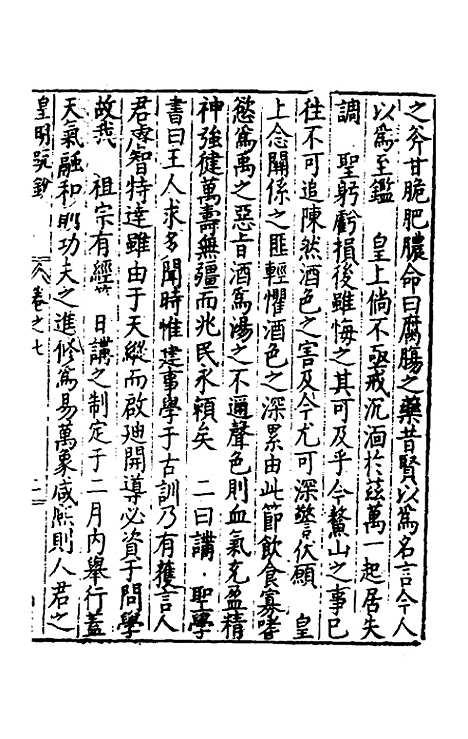 之斧甘脆肥膿命曰腐腸之藥昔賢以爲名言今人
以爲至鑑 皇上倘不亟戒沉湎於茲萬一起居失
調 聖躬虧損後雖悔之其可及乎今鰲山之事已
往不可追陳然酒色之害及今尤可深警伏願 皇
上念關係之匪輕懼酒色之深累由此節飲食寡嗜
慾爲禹之惡旨酒爲湯之不邇聲色則血氣充盈精
神強健萬壽無疆而兆民永賴矣 二曰講 聖學
書曰王人求多聞時惟建事學于古訓乃有獲言人
君睿智特達雖由于天縱而啟廸開導必資于問學
故我 祖宗有經筵日講之制定于二月內舉行蓋
天氣融和則功夫之進修爲易萬象咸熙則人君之
皇明疏鈔 卷之七 二